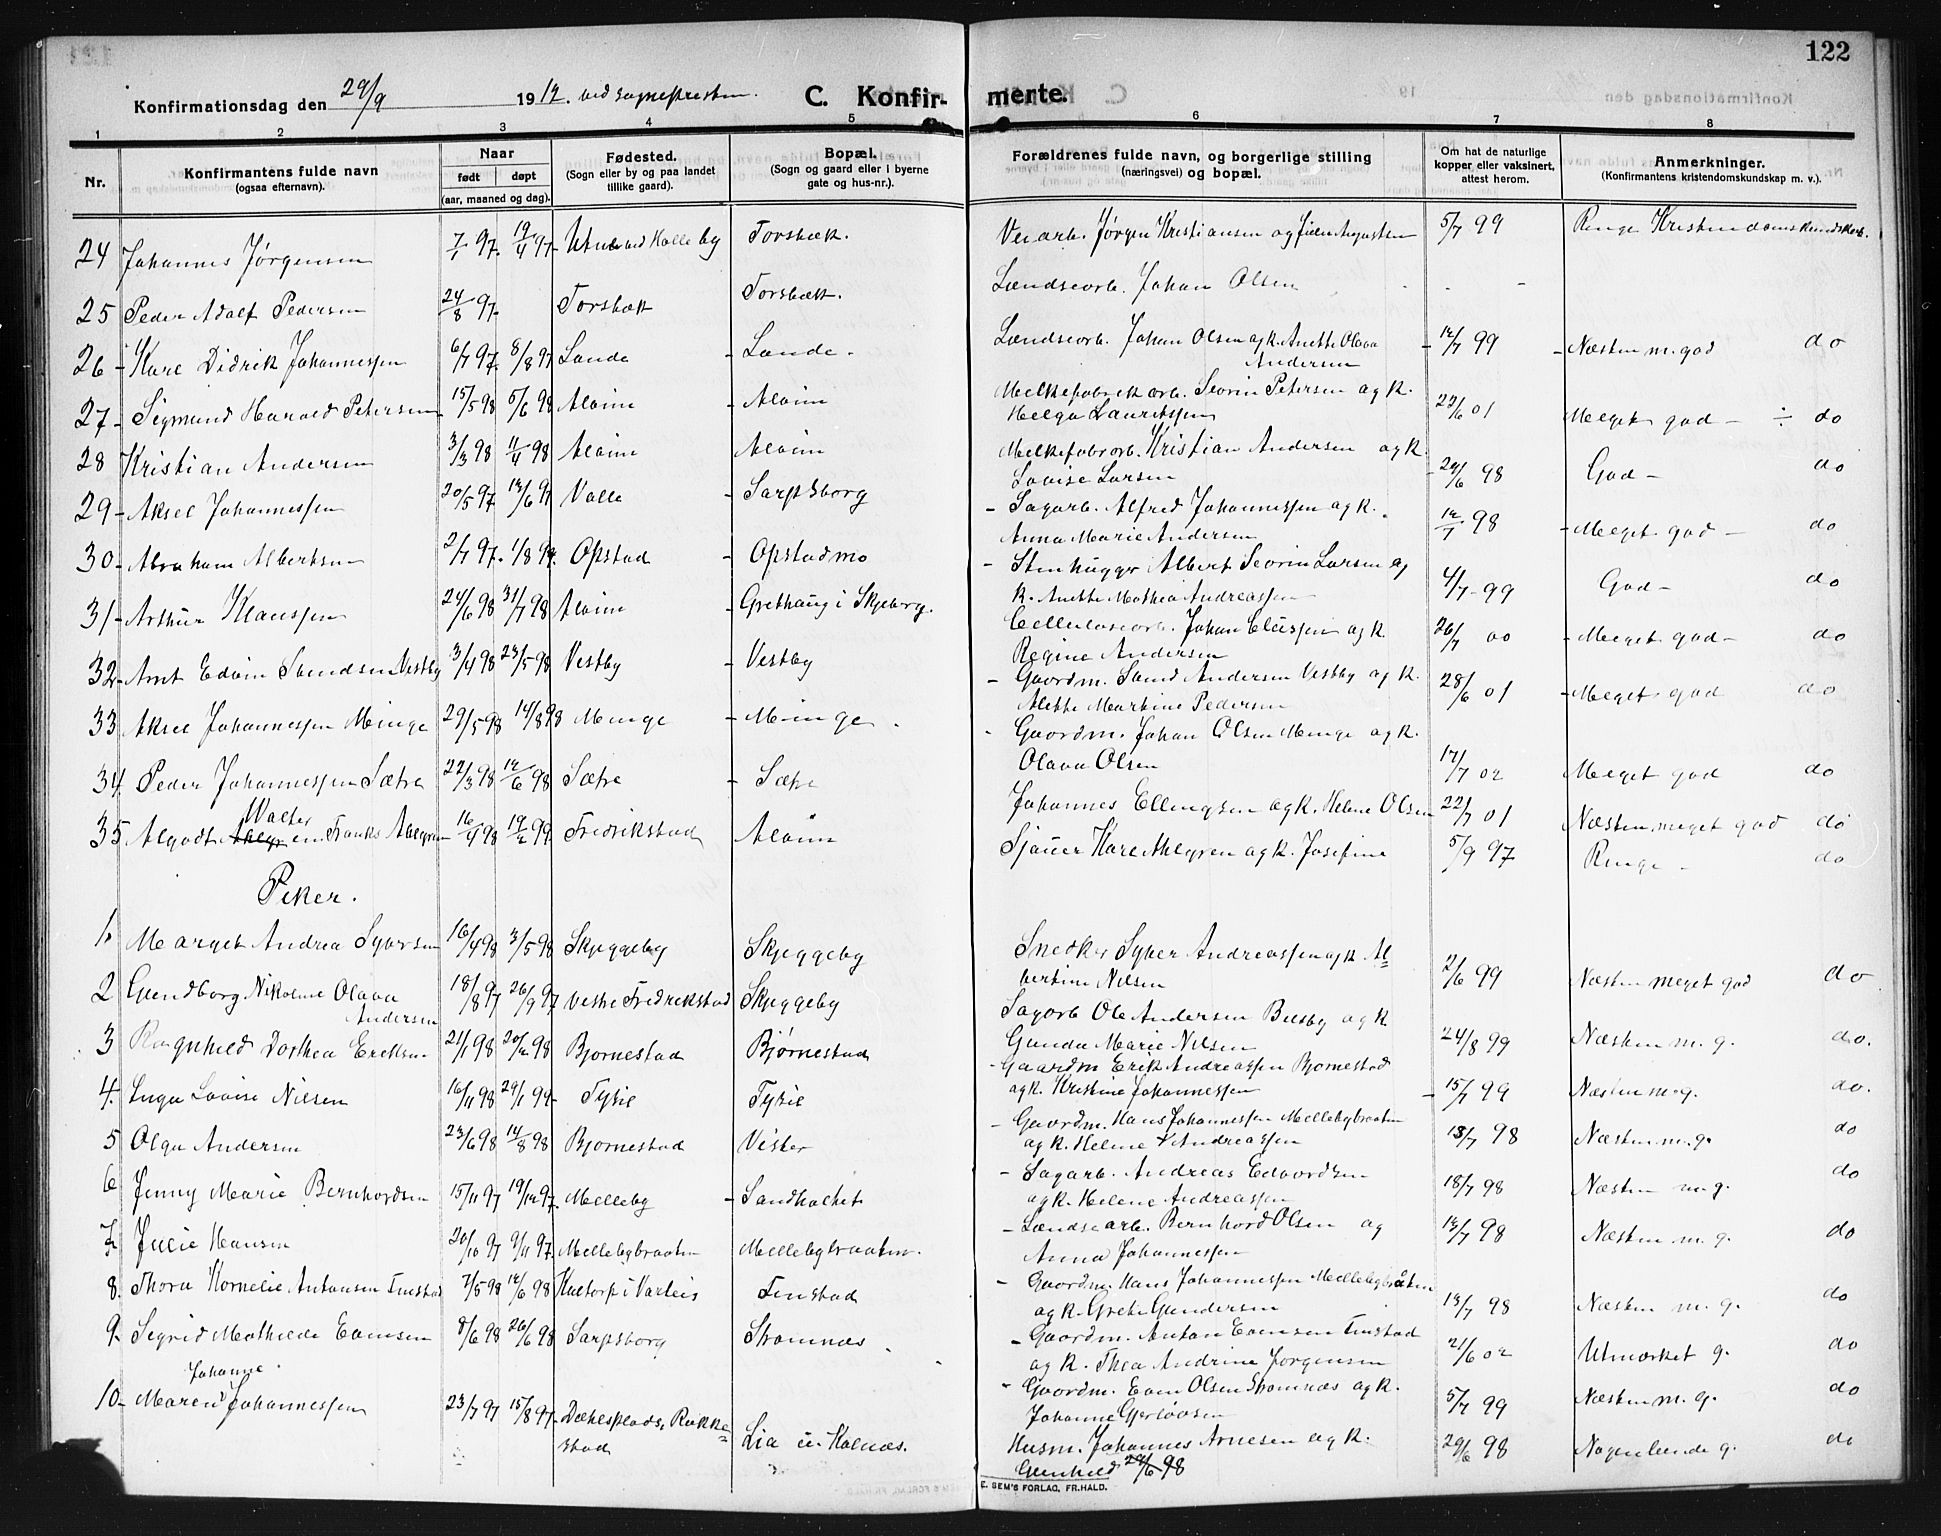 122
Konfirmationsdag den 29/9 1912. ved sognepresten. C. Konfir- merte.
1 2 3 4 5 6 7 8
Nr. Konfirmantens fulde navn (ogsaa efternavn). Naar født døpt (aar, maaned og dag). Fødested. (Sogn eller by og paa landet tillike gaard). Bopæl. (Sogn og gaard eller i byerne gate og hus-nr.). Forældrenes fulde navn, og borgerlige stilling (næringsvei) og bopæl. Om hat de naturlige kopper eller vaksinert, attest herom. Anmerkninger. (Konfirmantens kristendomskundskap m. v.).
24 Johannes Jørgensen 7/1 97. 19/4 97 Torsbæk. Veiarb. Jørgen Kristiansen og 5/7 99 Ringe Kristendomskundskab.
25 Peder Adolf Pedersen 24/8 97. Torsbæk Torsbæk. Lændsearb. Johan Olsen - - -
26 - Karl Didrik Johannessen 6/7 97. 8/8 97 Lande - Lande. Lændsearb. Johan Olsen og k. Anette Olava Andersen - 12/7 99 - Næsten m. god do
27 - Sigmund Harald Petersen 15/5 98 5/6 98 Alvim - Alvim Melkefabrikarb. Severin Petersen og k. Helga Lauritssen 22/6 01 Meget god - ÷ do
28 Kristian Andersen 3/3 98 11/4 98 Alvim Alvim Melkefabrarb. Kristian Andersen og k. Lovise Larsen 29/6 98 God - do
29 - Aksel Johannessen 20/5 97 13/6 97 Valle - Sarpsborg - Sagarb. Alfred Johannessen og k. Anna Marie Andersen 12/7 98 - Meget god - do
30 - Abraham Albertsen 2/7 97. 1/8 97. Opstad - Opstadmo - Stenhugger Albert Severin Larsen og k. Anette Mathea Andreassen 4/7 99 God - do
31 - Arthur Klaussen 24/6 98 31/7 98 Alvim - Grethaug i Skjeberg. Cellulosearb. Johan Claussen og k. Regine Andersen 26/7 00 - Meget god - do
32 - Arnt Edvin Svendsen Vestby 3/4 98 23/5 98 Vestby - Vestby - Gaardm. Svend Andersen Vestby og k. Alette Martine Pedersen 28/6 01 - Meget god do
33 Aksel Johannessen Minge 29/5 98 14/8 98 Minge - Minge. - Gaardm. Johan Olsen Minge og k. Olava Olsen 17/7 02 Meget god do
34 Peder Johannessen Sætre 22/3 98 12/6 98 Sætre - Sætre Johannes Ellingsen og k. Helene Olsen 22/7 01 Næsten meget god do
35 Algodt Walter Frants Ahlgren 16/4 98 19/2 99 Fredrikstad Alvim Sjauer Karl Ahlgren og k. Josefine 5/9 97 Ringe - do
Piker.
1. Marget Andrea Syversen 16/4 98 3/5 98 Skjeggeby Skjeggeby Snedker Syver Andreassen og k. Albertine Nilsen 2/6 99 Næsten meget god do
2 Gundborg Nikoline Olava Andersen 18/8 97 26/9 97 Vestre Fredrikstad Skjeggeby Sagarb Ole Andersen Busby og k Gunda Marie Nilsen 24/8 99 Næsten m. g. do.
3 Ragnhild Dorthea Eriksen 21/1 98 20/2 98 Bjørnestad Bjørnestad - Gaardm Erik Andreassen Bjørnestad og k. Kristine Johannessen - 15/7 99 Næsten m. g. do.
4. Inga Lovise Nilsen 16/11 98 29/1 99 - Tyrie Tyrie - Gaardm. Hans Johannessen Mellebybraaten og k. Helene Andreassen 18/7 98 Næsten m. g. do
5 Olga Andersen 23/6 98 14/8 98 Bjørnestad Vister - Sagarb. Andreas Edvardsen og k. Helene Andreassen 18/7 98 Næsten m. g. do
6 Jenny Marie Bernhardsen 15/11 97 19/12 97. Melleby - Sandholtet - Lændsearb. Bernhard Olsen og Anna Johannessen 13/7 98 Næsten m. g. do
7. Julie Hansen 20/10 97 9/11 97. Mellebybraaten Mellebybraaten. - Gaardm. Hans Johannessen Mellebybråten og k. Grete Gundersen 13/7 98 Næsten m. g. do
8. Thora Kornelie Antonsen Finstad 7/5 98 12/6 98 Kaltorp i Varteig Finstad - Gaardm. Anton Evensen Finstad og k. Thea Andrine Jørgensen 21/6 02 Utmærket g. do
9. Sigrid Mathilde Evensen 8/6 98 26/6 98 Sarpsborg Strømnæs. - Gaardm. Even Olsen Strømnæs og k. Johanne Gjerløvsen 5/7 99 Næsten m. g. do
10 - Maren Johanne Johannessen 23/7 97 15/8 97. Rakkestad Lia u. Kalnæs. Husm. Johannes Arnesen og k. Gunhild 29/6 98 29/6 98 Nogenlunde g. do
E. SEM'S FORLAG, FR.HALD.